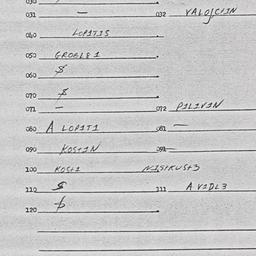 030
031 — 032 VALOJCIIN
040 LOPITIS
050 GROBLE 1
060 $
070 $
071 — 072 PILIVIN
080 A LOPITI 081 —
090 KOSTIN 091 —
100 KOSTI NISTRUST3
110 $ 111 A VIDL3
120